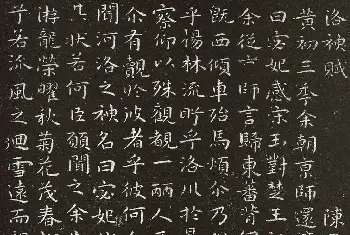 洛神賦 陳
黄初三年余朝京師還
曰宓妃感宋玉對楚王
余從京師言歸東藩背
既西傾車殆馬煩尒乃
乎陽林流眄乎洛川於是
察仰以殊觀覩一麗人
尒有覿於彼者乎彼何
聞河洛之神名曰宓妃
其狀若何臣願聞之余
游龍榮曜秋菊花茂春
兮若流風之迴雪遠而